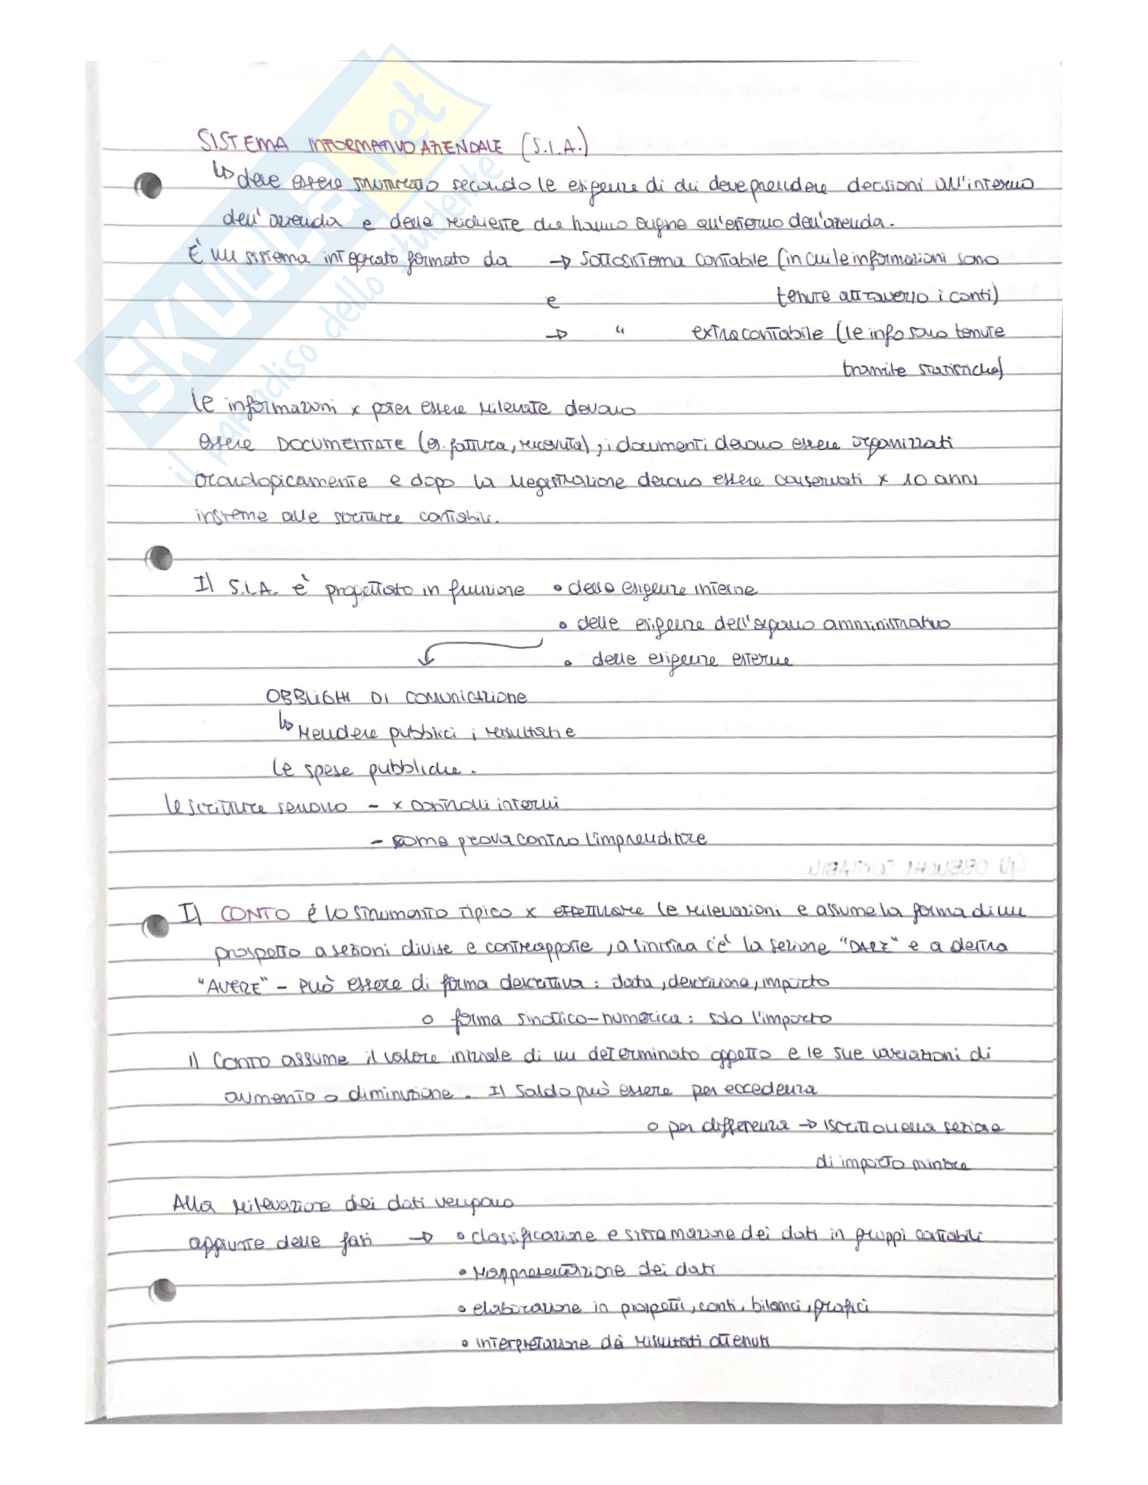 SISTEMA INFORMATIVO AZIENDALE (S.I.A.)
↳ deve essere strutturato secondo le esigenze di chi deve prendere decisioni all'interno
dell'azienda e delle richieste che hanno origine all'esterno dell'azienda.
È un sistema integrato formato da → Sottosistema contabile (in cui le informazioni sono
e tenute attraverso i conti)
→ " extracontabile (le info sono tenute
tramite statistiche)
Le informazioni x poter essere rilevate devono
essere DOCUMENTATE (es. fattura, ricevuta), i documenti devono essere organizzati
cronologicamente e dopo la registrazione devono essere conservati x 10 anni
insieme alle scritture contabili.
Il S.I.A. è progettato in funzione • delle esigenze interne
• delle esigenze dell'organo amministrativo
• delle esigenze esterne
OBBLIGHI DI COMUNICAZIONE
↳ Rendere pubblici i risultati e
le spese pubbliche.
le scritture servono - x controlli interni
- come prova contro l'imprenditore
Il CONTO è lo strumento tipico x effettuare le rilevazioni e assume la forma di un
prospetto a sezioni divise e contrapposte, a sinistra c'è la sezione "DARE" e a destra
"AVERE" - può essere di forma descrittiva: data, descrizione, importo
o forma sinottico-numerica: solo l'importo
Il Conto assume il valore iniziale di un determinato oggetto e le sue variazioni di
aumento o diminuzione. Il Saldo può essere per eccedenza
o per differenza → iscritto nella sezione
di importo minore
Alla rilevazione dei dati vengono
aggiunte delle fasi → • classificazione e sistemazione dei dati in gruppi contabili
• Rappresentazione dei dati
• elaborazione in prospetti, conti, bilanci, grafici
• interpretazione dei risultati ottenuti
SKUOLA.net
il paradiso dello studente